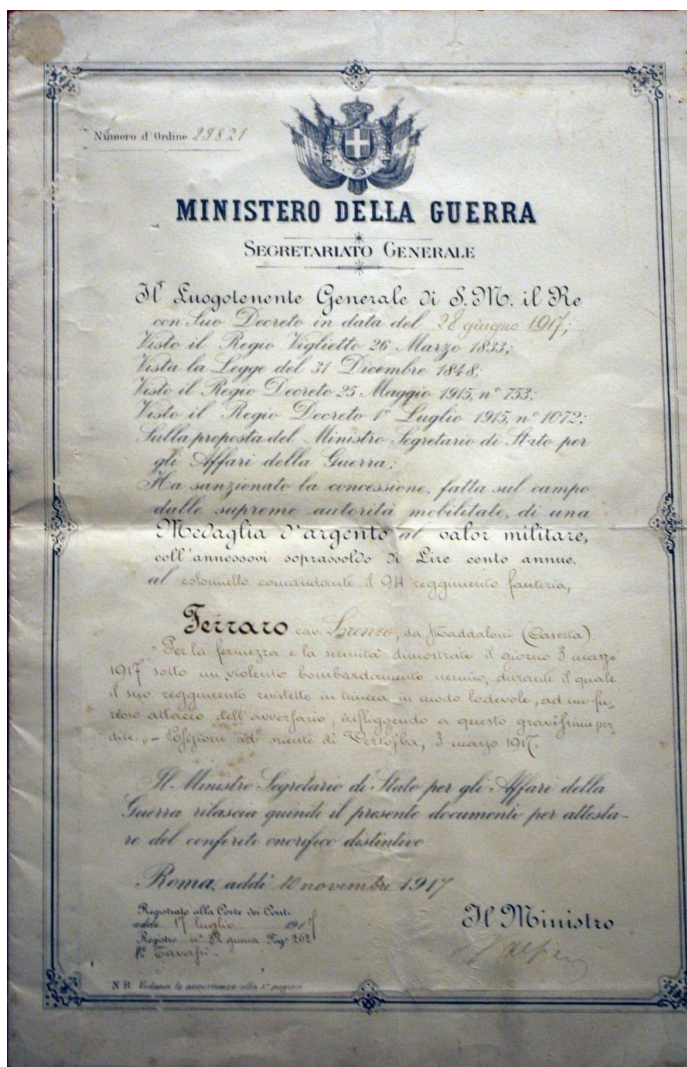 Numero d'Ordine 29821
MINISTERO DELLA GUERRA
SEGRETARIATO GENERALE
Il Luogotenente Generale di S. M. il Re
con Suo Decreto in data del 28 giugno 1917;
Visto il Regio Viglietto 26 Marzo 1833;
Vista la Legge del 31 Dicembre 1848;
Visto il Regio Decreto 25 Maggio 1915, n° 753;
Visto il Regio Decreto 1° Luglio 1915, n° 1072;
Sulla proposta del Ministro Segretario di Stato per
gli Affari della Guerra;
Ha sanzionato la concessione, fatta sul campo
dalle supreme autorità mobilitate, di una
Medaglia d'argento al valor militare,
coll'annessovi soprassoldo di Lire cento annue,
al colonnello comandante il 94 reggimento fanteria,
Ferraro cav. Lorenzo, da Maddaloni (Caserta).
"Per la fermezza e la serenità dimostrate il giorno 3 marzo
1917 sotto un violento bombardamento nemico, durante il quale
il suo reggimento resistette in trincea in modo lodevole, ad un fu-
rioso attacco dell'avversario, infliggendo a questo gravissime per-
dite. „ - Posizione ad oriente di Vertojba, 3 marzo 1917.
Il Ministro Segretario di Stato per gli Affari della
Guerra rilascia quindi il presente documento per attesta-
re del conferito onorifico distintivo
Roma, addì 10 novembre 1917
Registrato alla Corte dei Conti
addì 17 luglio 1917
Registro n° 82 guerra Fog° 262
Il Ministro
N B Vedansi le avvertenze alla 3ª pagina